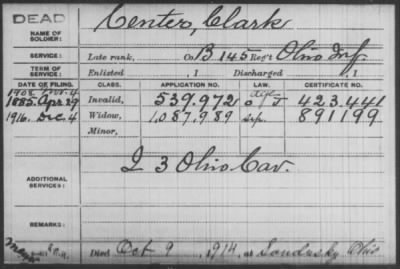 DEAD
NAME OF SOLDIER: Centers, Clark
SERVICE: Late rank, Co B 145 Reg't Ohio Inf.
TERM OF SERVICE: Enlisted , 1 Discharged , 1
DATE OF FILING. CLASS. APPLICATION NO. LAW. CERTIFICATE NO.
1885. Apr 29 Invalid, 539.972 423.441
1916. Dec. 4 Widow, 1,087,989 891199
Minor,
ADDITIONAL SERVICES: I 3 Ohio Cav.
REMARKS:
Died Oct 9, 1914, at Sandusky Ohio